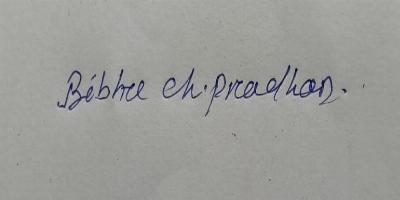 Bibhu ch. pradhan.